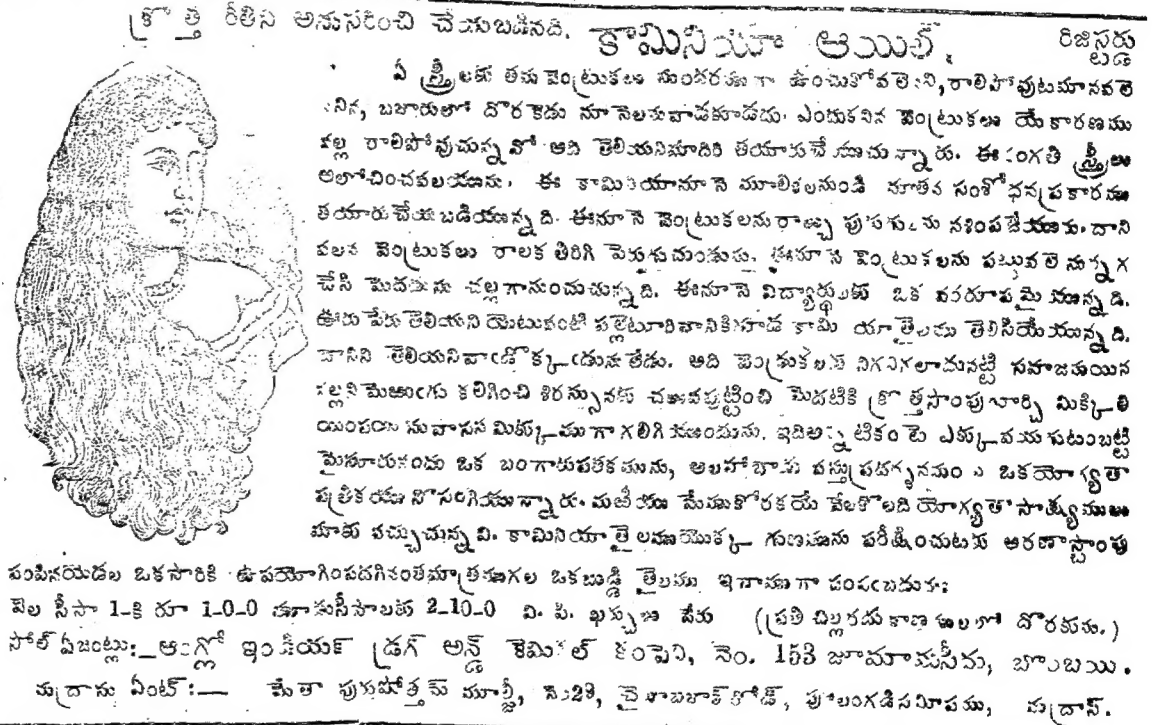 క్రొత్త రీతిని అనుసరించి చేయబడినది. కామినియా ఆయిల్. రిజిస్టర్డు
ఏ స్త్రీలకు తమ వెంట్రుకలు సుందరముగా ఉంచుకోవలెనని, రాలిపోవుటమానవలె
నని, బజారులో దొరకెడు నూనెలనువాడకూడదు. ఎందుకనిన వెంట్రుకలు యేకారణము
వల్ల రాలిపోవుచున్నవో అది తెలియనిమాదిరి తయారుచేయుచున్నారు. ఈసంగతి స్త్రీలు
ఆలోచించవలయును. ఈ కామినియానూనె మూలికలనుండి నూతన సంశోధనప్రకారము
తయారుచేయబడియున్నది. ఈనూనె వెంట్రుకలనురాల్చు పురుగులను నశింపజేయును. దాని
వలన వెంట్రుకలు రాలక తిరిగి పెరుగుచుండును. ఈనూనె వెంట్రుకలను పట్టువలెనున్నగ
చేసి మెదడును చల్లగానుంచుచున్నది. ఈనూనె విద్యార్థులకు ఒక వరరూపమైయున్నది.
ఊరు పేరు తెలియని యెటువంటి పల్లెటూరివానికికూడ కామినియాతైలము తెలిసియేయున్నది.
దానిని తెలియనివాఁడొక్కఁడును లేడు. అది వెంట్రుకలకు నిగనిగలాడునట్టి సహజమయిన
నల్లనిమెఱుఁగు కలిగించి శిరస్సునకు చలువపుట్టించి మెదటికి క్రొత్తసొంపుకూర్చి మిక్కిలి
యింపయిన సువాసన మిక్కుముగా గలిగియుండును. ఇది అన్నిటికంటె ఎక్కువయగుటంబట్టి
మైసూరునందు ఒక బంగారుపతకమును, అలహాబాదు వస్తుప్రదర్శనమందు ఒకయోగ్యతా
పత్రికయు నొసంగియున్నారు. మఱియు మేముకోరకయే వేలకొలది యోగ్యతాసాక్ష్యములు
మాకు వచ్చుచున్నవి. కామినియా తైలముయొక్క గుణమును పరీక్షించుటకు అరణాస్టాంపు
పంపినయెడల ఒకసారికి ఉపయోగింపదగినంతమాత్రముగల ఒకబుడ్డి తైలము ఇనాముగా పంపఁబడును.
వెల సీసా 1-కి రూ 1-0-0 మూడుసీసాలకు 2-10-0 వి. పి. ఖర్చులు వేరు (ప్రతి చిల్లరదుకాణములలో దొరకును.)
సోల్ ఏజంట్లు:—ఆంగ్లో ఇండియన్ డ్రగ్ అన్డ్ కెమికల్ కంపెని, నెం. 153 జూమామసీదు, బొంబయి.
మద్రాసు ఏంట్:— మేతా పురుషోత్తమ్ మూల్జీ, నెం28, రోడ్, పూలంగడిసమీపము, మద్రాస్.